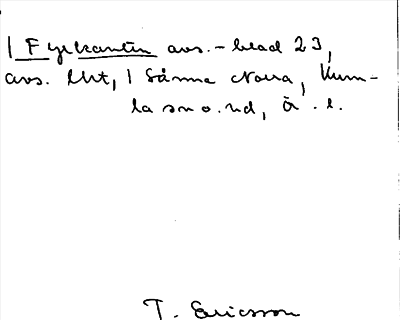 | Fyrkanten avs. - blad 23,
avs. Lht, | Sånna Norra, Kum-
la sn o. hd, Ö. l.
T. Ericsson